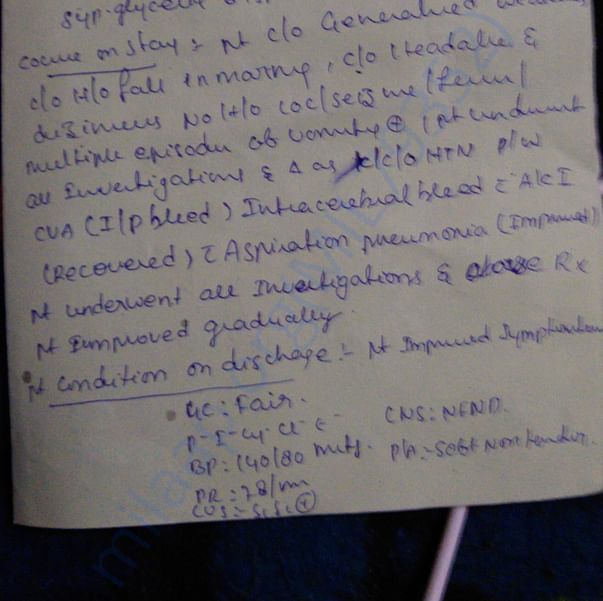 Syp. glycerin
course on stay :- pt c/o Generalised
c/o H/o fall in morning, c/o Headache &
dizziness No H/o LOC/seizure/fever/
multiple episodes of vomiting ⊕ / pt underwent
all Investigations & Δ as K/c/o HTN p/w
CVA (I/P bleed) Intracerebral bleed c̄ AKI
(Recovered) c̄ Aspiration pneumonia (Improved)
pt underwent all Investigations & Rx
pt Improved gradually.
pt condition on discharge :- pt Improved Symptomatic
GC : Fair.
P- I- Cy- Cl- E- CNS : NFND.
BP : 140/80 mmHg. P/A :- Soft Non tender.
PR : 78/m
CVS :- S1S2 ⊕
milaap